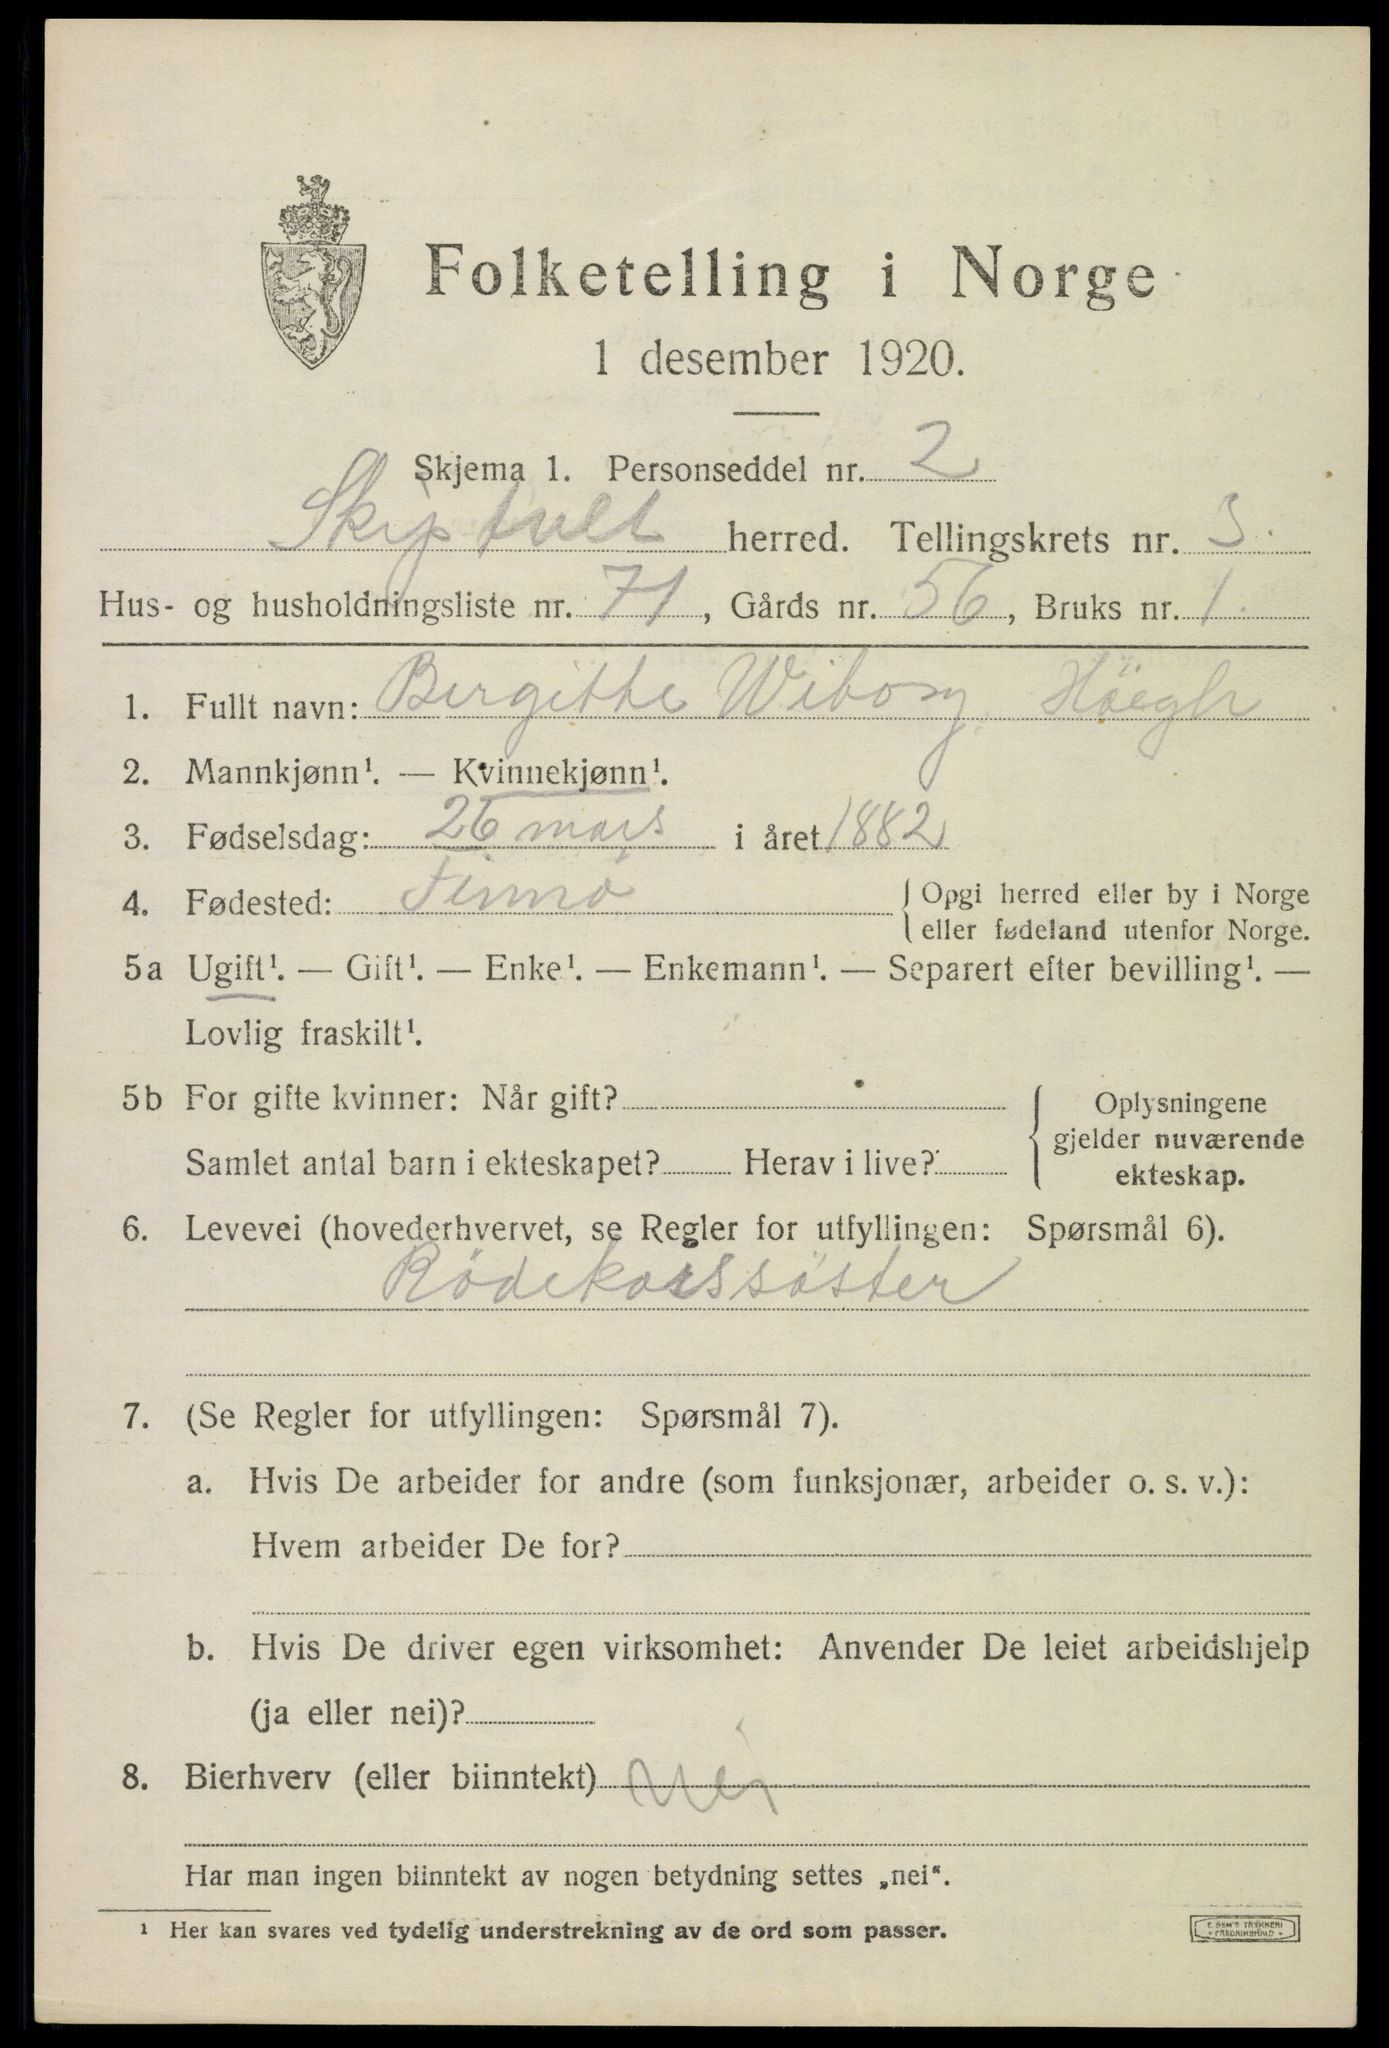 Folketelling i Norge
1 desember 1920.
Skjema 1. Personseddel nr. 2
Skiptvet herred. Tellingskrets nr. 3.
Hus- og husholdningsliste nr. 71, Gårds nr. 56, Bruks nr. 1.
1. Fullt navn: Birgithe Wiborg Höegh
2. Mannkjønn¹. — Kvinnekjønn¹.
3. Fødselsdag: 26 mars i året 1882
4. Fødested: { Opgi herred eller by i Norge
eller fødeland utenfor Norge.
5a Ugift¹. — Gift¹. — Enke¹. — Enkemann¹. — Separert efter bevilling¹. —
Lovlig fraskilt¹.
5b For gifte kvinner: Når gift?
Samlet antal barn i ekteskapet? Herav i live?
Oplysningene
gjelder nuværende
ekteskap.
6. Levevei (hovederhvervet, se Regler for utfyllingen: Spørsmål 6).
Rödekorssöster
7. (Se Regler for utfyllingen: Spørsmål 7).
a. Hvis De arbeider for andre (som funksjonær, arbeider o. s. v.):
Hvem arbeider De for?
b. Hvis De driver egen virksomhet: Anvender De leiet arbeidshjelp
(ja eller nei)?
8. Bierhverv (eller biinntekt) Nei
Har man ingen biinntekt av nogen betydning settes „nei“.
¹ Her kan svares ved tydelig understrekning av de ord som passer.
E. SEM'S TRYKKERI
FREDRIKSHALD